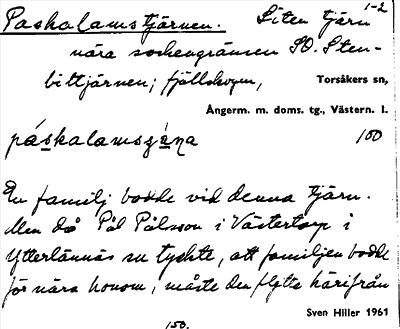 Paskalamstjärnen. Liten tjärn 1-2
nära sockengränsen SO. Sten-
bittjärnen; fjällskogen,
Torsåkers sn,
Ångerm. m. doms. tg., Västern. l.
100
En familj bodde vid denna tjärn.
Men då Pål Pålsson i Västertorp i
Ytterlännäs sn tyckte, att familjen bodde
för nära honom, måste den flytta härifrån
Sven Hiller 1961
150.